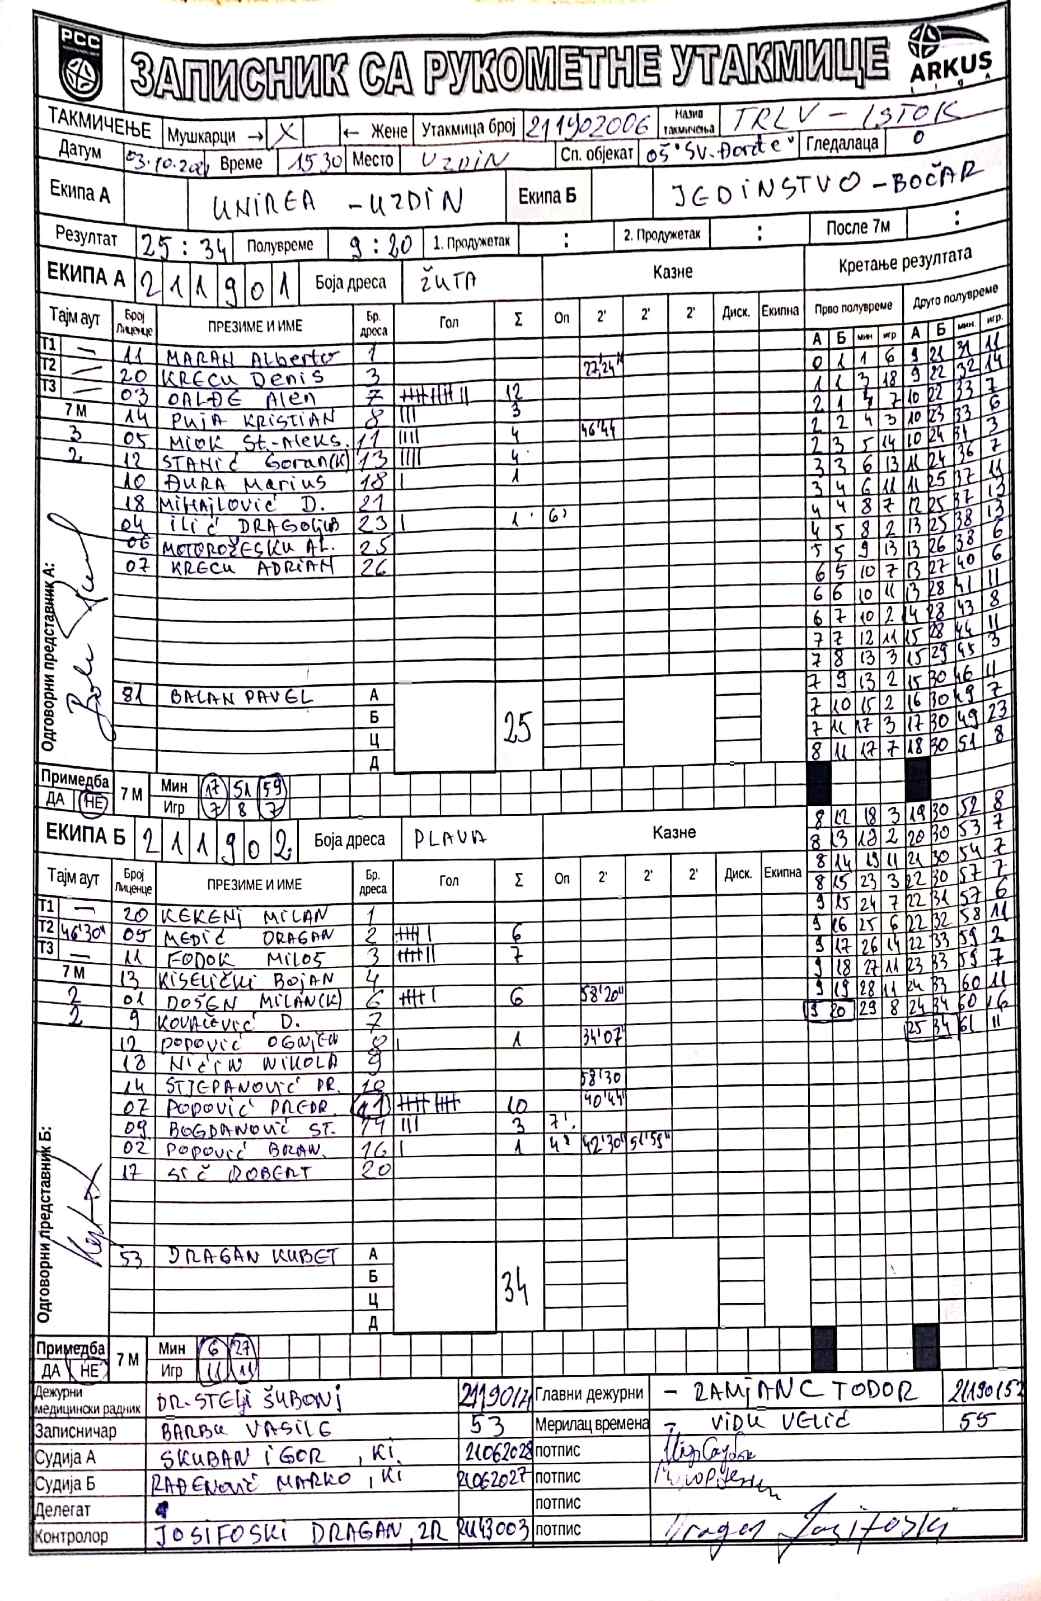 РСС
ЗАПИСНИК СА РУКОМЕТНЕ УТАКМИЦЕ
ARKUS
liga
ТАКМИЧЕЊЕ Мушкарци → X ← Жене Утакмица број 211902006 Назив такмичења TRLV - ISTOK
Датум 03.10.20 Време 15 30 Место UZDIN Сп. објекат OŠ "SV. Đorđe" Гледалаца 0
Екипа А UNIREA - UZDIN Екипа Б JEDINSTVO - BOČAR
Резултат 25 : 34 Полувреме 9 : 20 1. Продужетак : 2. Продужетак : После 7м :
ЕКИПА А 2 1 1 9 0 1 Боја дреса ŽUTA Казне Кретање резултата
Тајм аут Број Лиценце ПРЕЗИМЕ И ИМЕ Бр. дреса Гол Σ Оп 2' 2' 2' Диск. Екипна Прво полувреме Друго полувреме
А Б мин игр А Б мин. игр.
T1 — 11 MARAN Alberto 1 0 1 1 6 9 21 31 11
T2 — 20 KRECU Denis 3 27,24" 1 1 3 18 9 22 32 14
T3 — 03 DALĐE Alen 7 12 2 1 4 7 10 22 33 7
7 М 14 PUJA KRISTIAN 8 3 2 2 4 3 10 23 33 6
3 05 MIOK St-Aleks. 11 4 46'44 2 3 5 14 10 24 34 3
2 12 STANIĆ Goran(K) 13 4 3 3 6 13 11 24 36 7
10 ĐURA Marius 18 1 3 4 6 11 11 25 37 11
18 MIHAJLOVIĆ D. 21 4 4 8 7 12 25 37 13
04 ILIĆ DRAGOLJUB 23 1 6' 4 5 8 2 13 25 38 13
06 MOTOROŽESKU AL. 25 5 5 9 13 13 26 38 6
07 KRECU ADRIAN 26 6 5 10 7 13 27 40 6
6 6 10 11 13 28 41 11
6 7 10 2 14 28 43 8
7 7 12 11 15 28 44 11
7 8 13 3 15 29 45 3
7 9 13 2 15 30 46 11
7 10 15 2 16 30 49 7
7 11 17 3 17 30 49 23
8 11 17 7 18 30 51 8
Одговорни представник А:
81 BALAN PAVEL А 25
Б
Ц
Д
Примедба ДА НЕ 7 М Мин 17 51 59
Игр 7 8 7
ЕКИПА Б 2 1 1 9 0 2 Боја дреса PLAVA Казне
8 12 18 3 19 30 52 8
8 13 18 2 20 30 53 7
8 14 19 11 21 30 54 7
8 15 23 3 22 30 57 7
9 15 24 7 22 31 57 6
9 16 25 6 22 32 58 11
9 17 26 14 22 33 59 2
9 18 27 11 23 33 59 7
9 19 28 11 24 33 60 11
9 20 29 8 24 34 60 16
25 34 61 11
Тајм аут Број Лиценце ПРЕЗИМЕ И ИМЕ Бр. дреса Гол Σ Оп 2' 2' 2' Диск. Екипна
T1 — 20 KEKENJ MILAN 1
T2 46'30" 05 MEDIĆ DRAGAN 2 6
T3 — 11 FODOK MILOŠ 3 7
7 М 13 KISELIČKI BOJAN 4
2 01 DOŠEN MILAN(K) 6 6 58'20"
2 9 KOVAČEVIĆ D. 7
12 POPOVIĆ OGNJEN 8 1 34'07"
18 NIĆIN NIKOLA 9
14 STJEPANOVIĆ PR. 10 58'30
07 POPOVIĆ PREDR. 11 10 40'44"
09 BOGDANOVIĆ ST. 14 3 7'
02 POPOVIĆ BRAN. 16 1 42'30" 51'55"
17 SIČ ROBERT 20
Одговорни представник Б:
53 DRAGAN KUBET А 34
Б
Ц
Д
Примедба ДА НЕ 7 М Мин 6 27
Игр 11 11
Дежурни медицински радник DR. STELJ ŠUBONJ Главни дежурни - ZAMJANC TODOR
Записничар BARBU VASILE 53 Мерилац времена VIDU VELIĆ 55
Судија А SKUBAN IGOR, KI. 21062028 потпис
Судија Б RAĐENOVIĆ MARKO, KI 21062027 потпис
Делегат потпис
Контролор JOSIFOSKI DRAGAN, ZR 21143003 потпис Dragan Josifoski